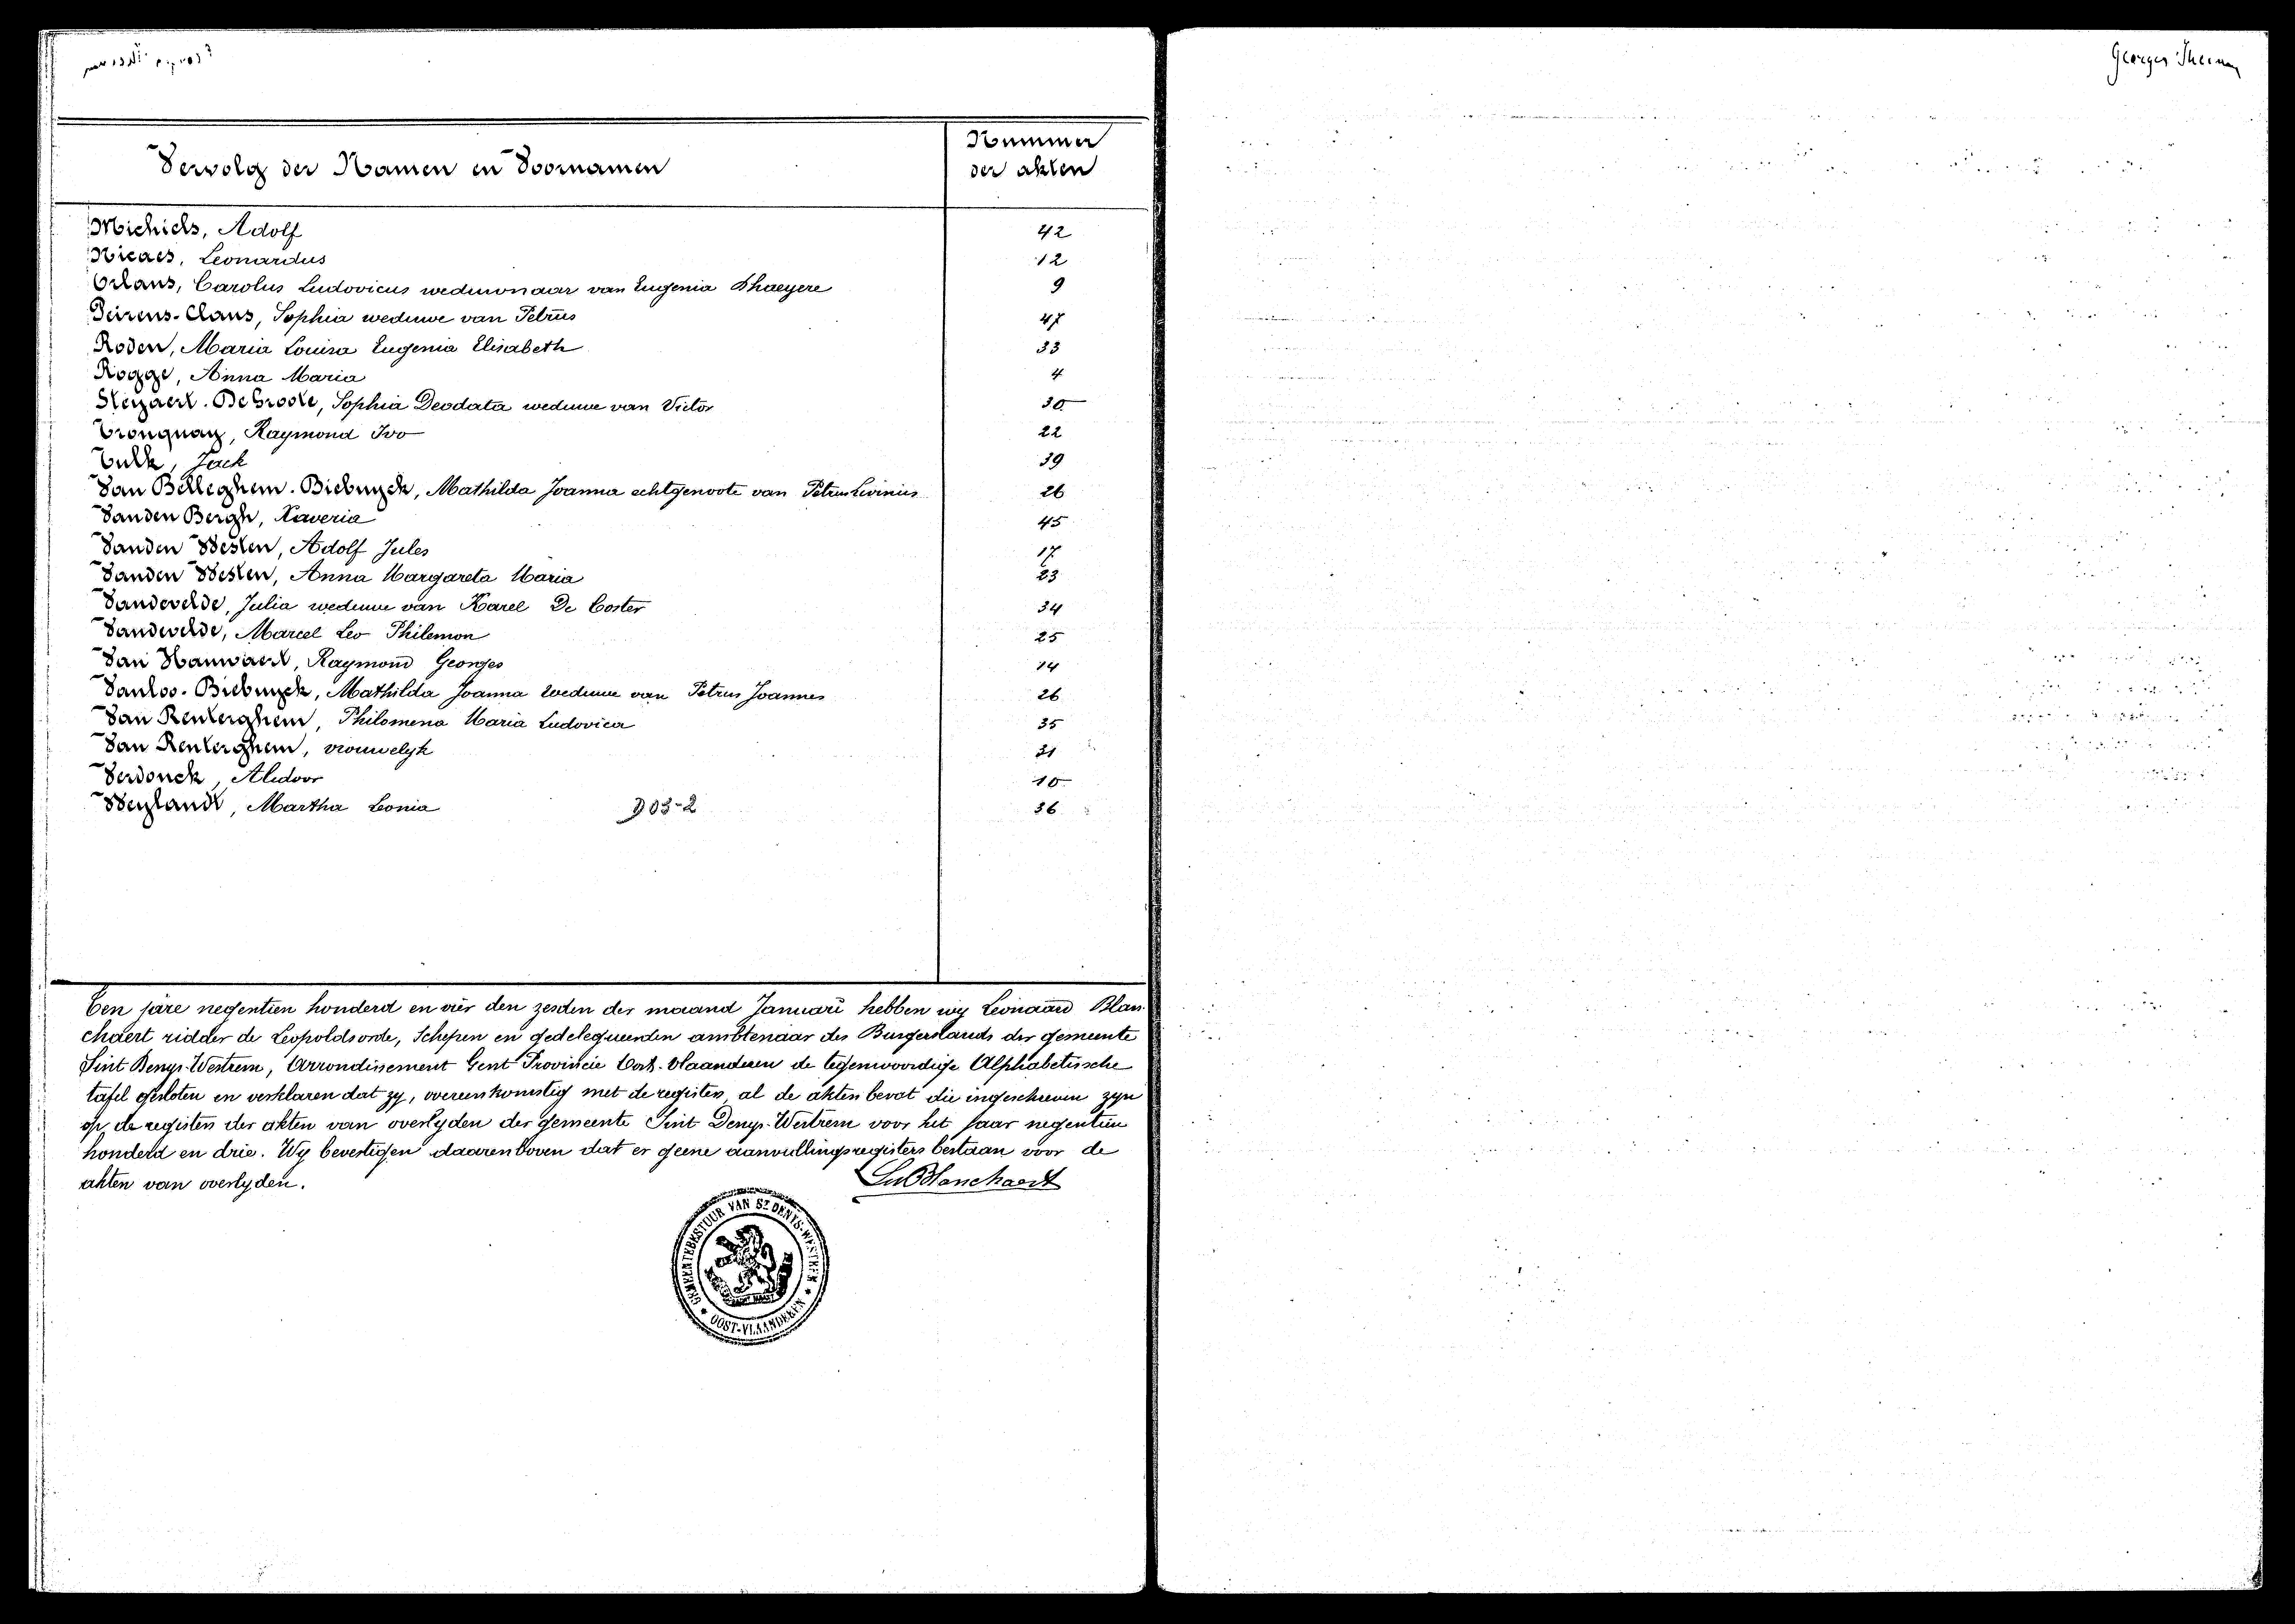 Georges Theunay
Vervolg der Namen en Voornamen
Nummer
der akten
Michiels, Adolf 42
Nicaes, Leonardus 12
Orlans, Carolus Ludovicus weduwnaar van Eugenia Dhaeyere 9
Peirens-Claus, Sophia weduwe van Petrus 47
Roden, Maria Louisa Eugenia Elisabeth 33
Rogge, Anna Maria 4
Steyaert-De Groote, Sophia Deodata weduwe van Victor 30
Tronquay, Raymond Ivo 22
Tulk, Jack 39
Van Belleghem-Biebuyck, Mathilda Joanna echtgenoote van Petrus Livinus 26
Vanden Bergh, Xaveria 45
Vanden Westen, Adolf Jules 17
Vanden Westen, Anna Margareta Maria 23
Vandevelde, Julia weduwe van Karel De Coster 34
Vandevelde, Marcel Leo Philemon 25
Van Hauwaert, Raymond Georges 14
Vanloo-Biebuyck, Mathilda Joanna weduwe van Petrus Joannes 26
Van Renterghem, Philomena Maria Ludovica 35
Van Renterghem, vrouwelyk 31
Verdonck, Alidoor 10
Weylandt, Martha Leonia 903-2 36
Ten jare negentien honderd en vier den zesden der maand Januari hebben wy Leonard Blan-
chaert ridder de Leopoldsorde, Schepen en gedelegueerden ambtenaar des Burgerstands der gemeente
Sint Denys-Westrem, Arrondissement Gent Provincie Oost-Vlaanderen de tegenwoordige Alphabetische
tafel gesloten en verklaren dat zy, overeenkomstig met de registers, al de akten bevat die ingeschreven zyn
op de registers der akten van overlyden der gemeente Sint Denys-Westrem voor het jaar negentien
honderd en drie. Wy bevestigen daarenboven dat er geene aanvullingsregisters bestaan voor de
akten van overlyden. Blanchaert
GEMEENTEBESTUUR VAN ST DENYS-WESTREM
OOST-VLAANDEREN